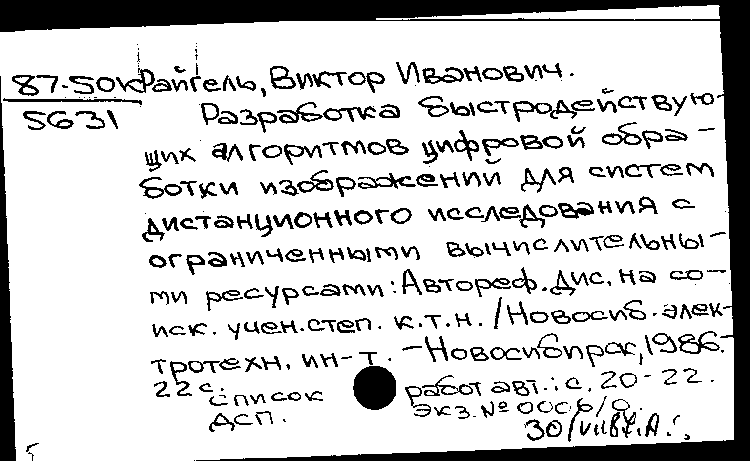 87-50к Райгель, Виктор Иванович.
5631 Разработка быстродействую-
щих алгоритмов цифровой обра-
ботки изображений для систем
дистанционного исследования с
ограниченными вычислительны-
ми ресурсами: Автореф. дис. на со-
иск. учен. степ. к.т.н. / Новосиб. элек-
тротехн. ин-т. - Новосибирск, 1986.-
22 с.
Список работ авт.: с. 20-22.
ДСП. Экз. № 0006/0.